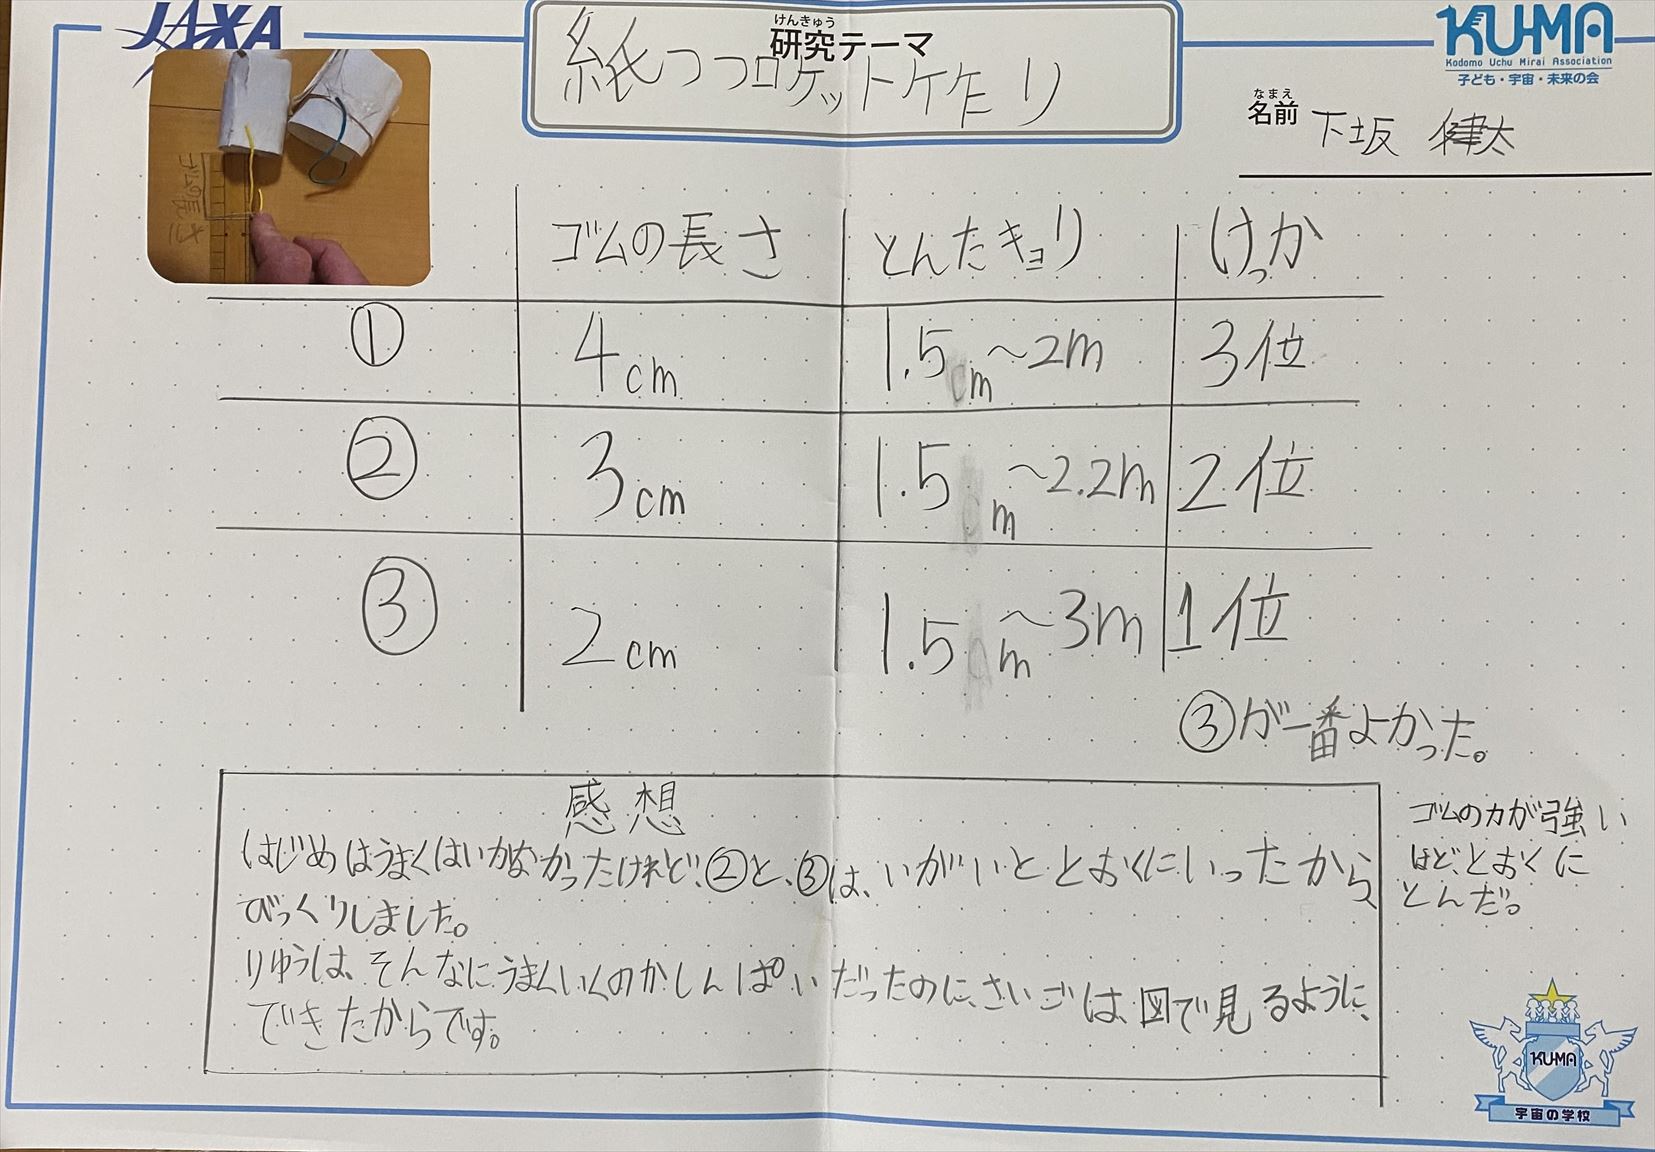 JAXA
けんきゅう
研究テーマ
紙つつロケットケ乍り
KUMA
Kodomo Uchu Mirai Association
子ども・宇宙・未来の会
なまえ
名前 下坂 健太
ゴムの長さ
ゴムの長さ とんだキョリ けっか
① 4cm 1.5m～2m 3位
② 3cm 1.5m～2.2m 2位
③ 2cm 1.5m～3m 1位
③が一番よかった。
感想
はじめはうまくはいかなかったけれど、②と、③は、いがいととおくにいったから
びっくりしました。
りゆうは、そんなにうまくいくのかしんぱいだったのに、さいごは、図で見るように、
できたからです。
ゴムのカが強い
ほど、とおくに
とんだ。
KU-MA
宇宙の学校